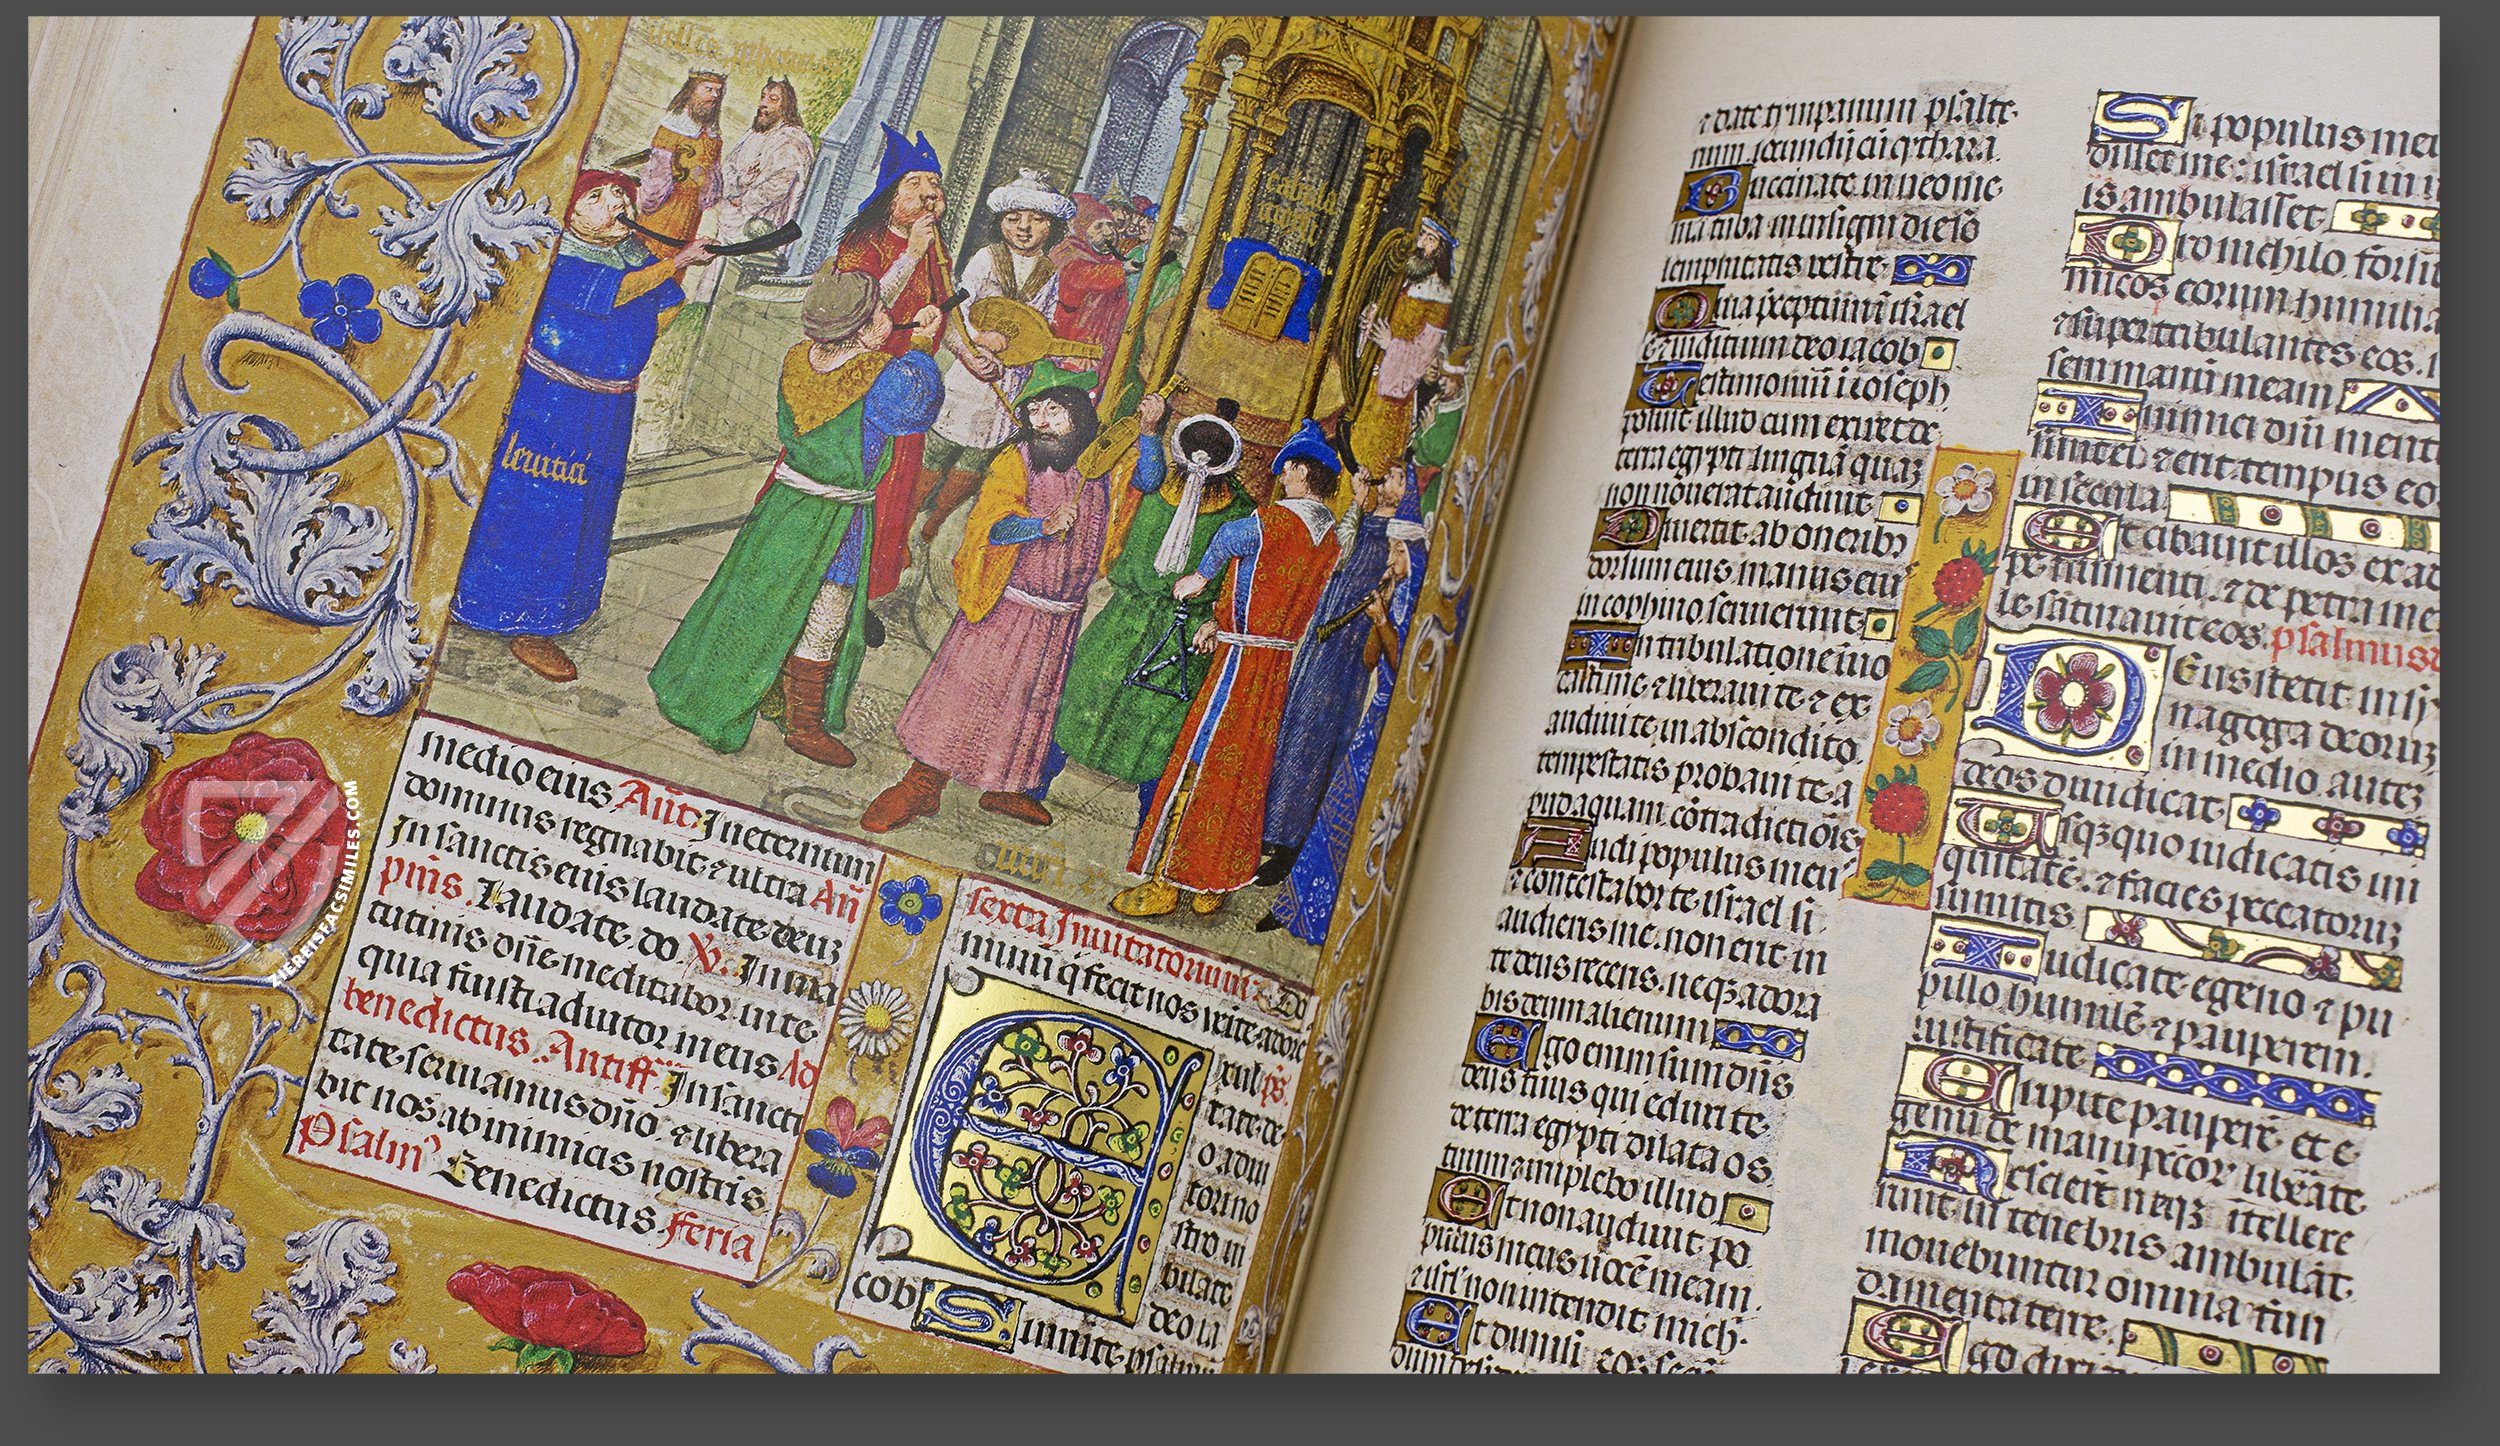 leuitici
medio eius Añ: In eternum
dominus regnabit ⁊ ultra Añ
In sanctis eius laudate deuȝ
pm̄s. Laudate. do. V. In ma
tutinis dñe meditabor in te
quia fuisti adiutor meus Ad
benedictus. Antiff. In sancti
tate seruiamus dño. ⁊ libera
bit nos ab inimicis nostris
Psalm Benedictus. Feria
sexta Inuitatorium Do
minum q̄ fecit nos venite adore
xul
tate de
o adiu
torio no
stro iu
bilate
deo ia
cob Sumite psalmū
⁊ date tympanum psalte
rium iocundū cū cythara.
Buccinate in neome
nia tuba in insigni die so
lempnitatis vestre
Quia p̄ceptum ī israel
⁊ iudicium deo iacob
Testimoniū ī ioseph
posuit illud cum exiret de
terra egypti linguā quaȝ
non nouerat audiuit
Diuertit ab oneribȝ
dorsum eius manus eiꝰ
in cophino seruierunt
In tribulatione īuo
casti me ⁊ liberaui te ⁊ ex
audiui te in abscondito
tempestatis probaui te a
pud aquam cōtradictiōis
Audi populus meū
⁊ contestabor te israel si
audieris me. non erit in
te deus recens. neqȝ adora
bis deum alienum
Ego enim sum dñs
deus tuus qui eduxi te
de terra egypti dilata os
tuum ⁊ implebo illud
Et non audiuit po
pulus meus uocē meam.
⁊ isrl' non intendit mich.
Et dimisi eos
Si populus meu
israel si in u
is ambulasset
Pro nichilo. forsit
micos eorum humilia
⁊ super tribulantes eos.
sem manū meam
Inimici dñi menti
⁊ erit tempus eo
in secula
Et cibauit illos ex ad
pe frumenti. ⁊ de petra me
le saturauit eos. psalmus
Deus stetit in sy
nagoga deoruȝ
in medio autȝ
deos diiudicat.
Usqȝquo iudicatis ini
quitatē. ⁊ facies peccatoruȝ
sumitis
Iudicate egeno ⁊ pu
pillo humilē ⁊ pauperem.
iustificate
Eripite pauperē et e
genū de manu pc̄cor' liberate
Nescierūt neqȝ ītellexe
runt in tenebris ambulāt.
mouebuntur omnia fun
damenta terre.
Ego dixi
ZIEREISFACSIMILES.COM